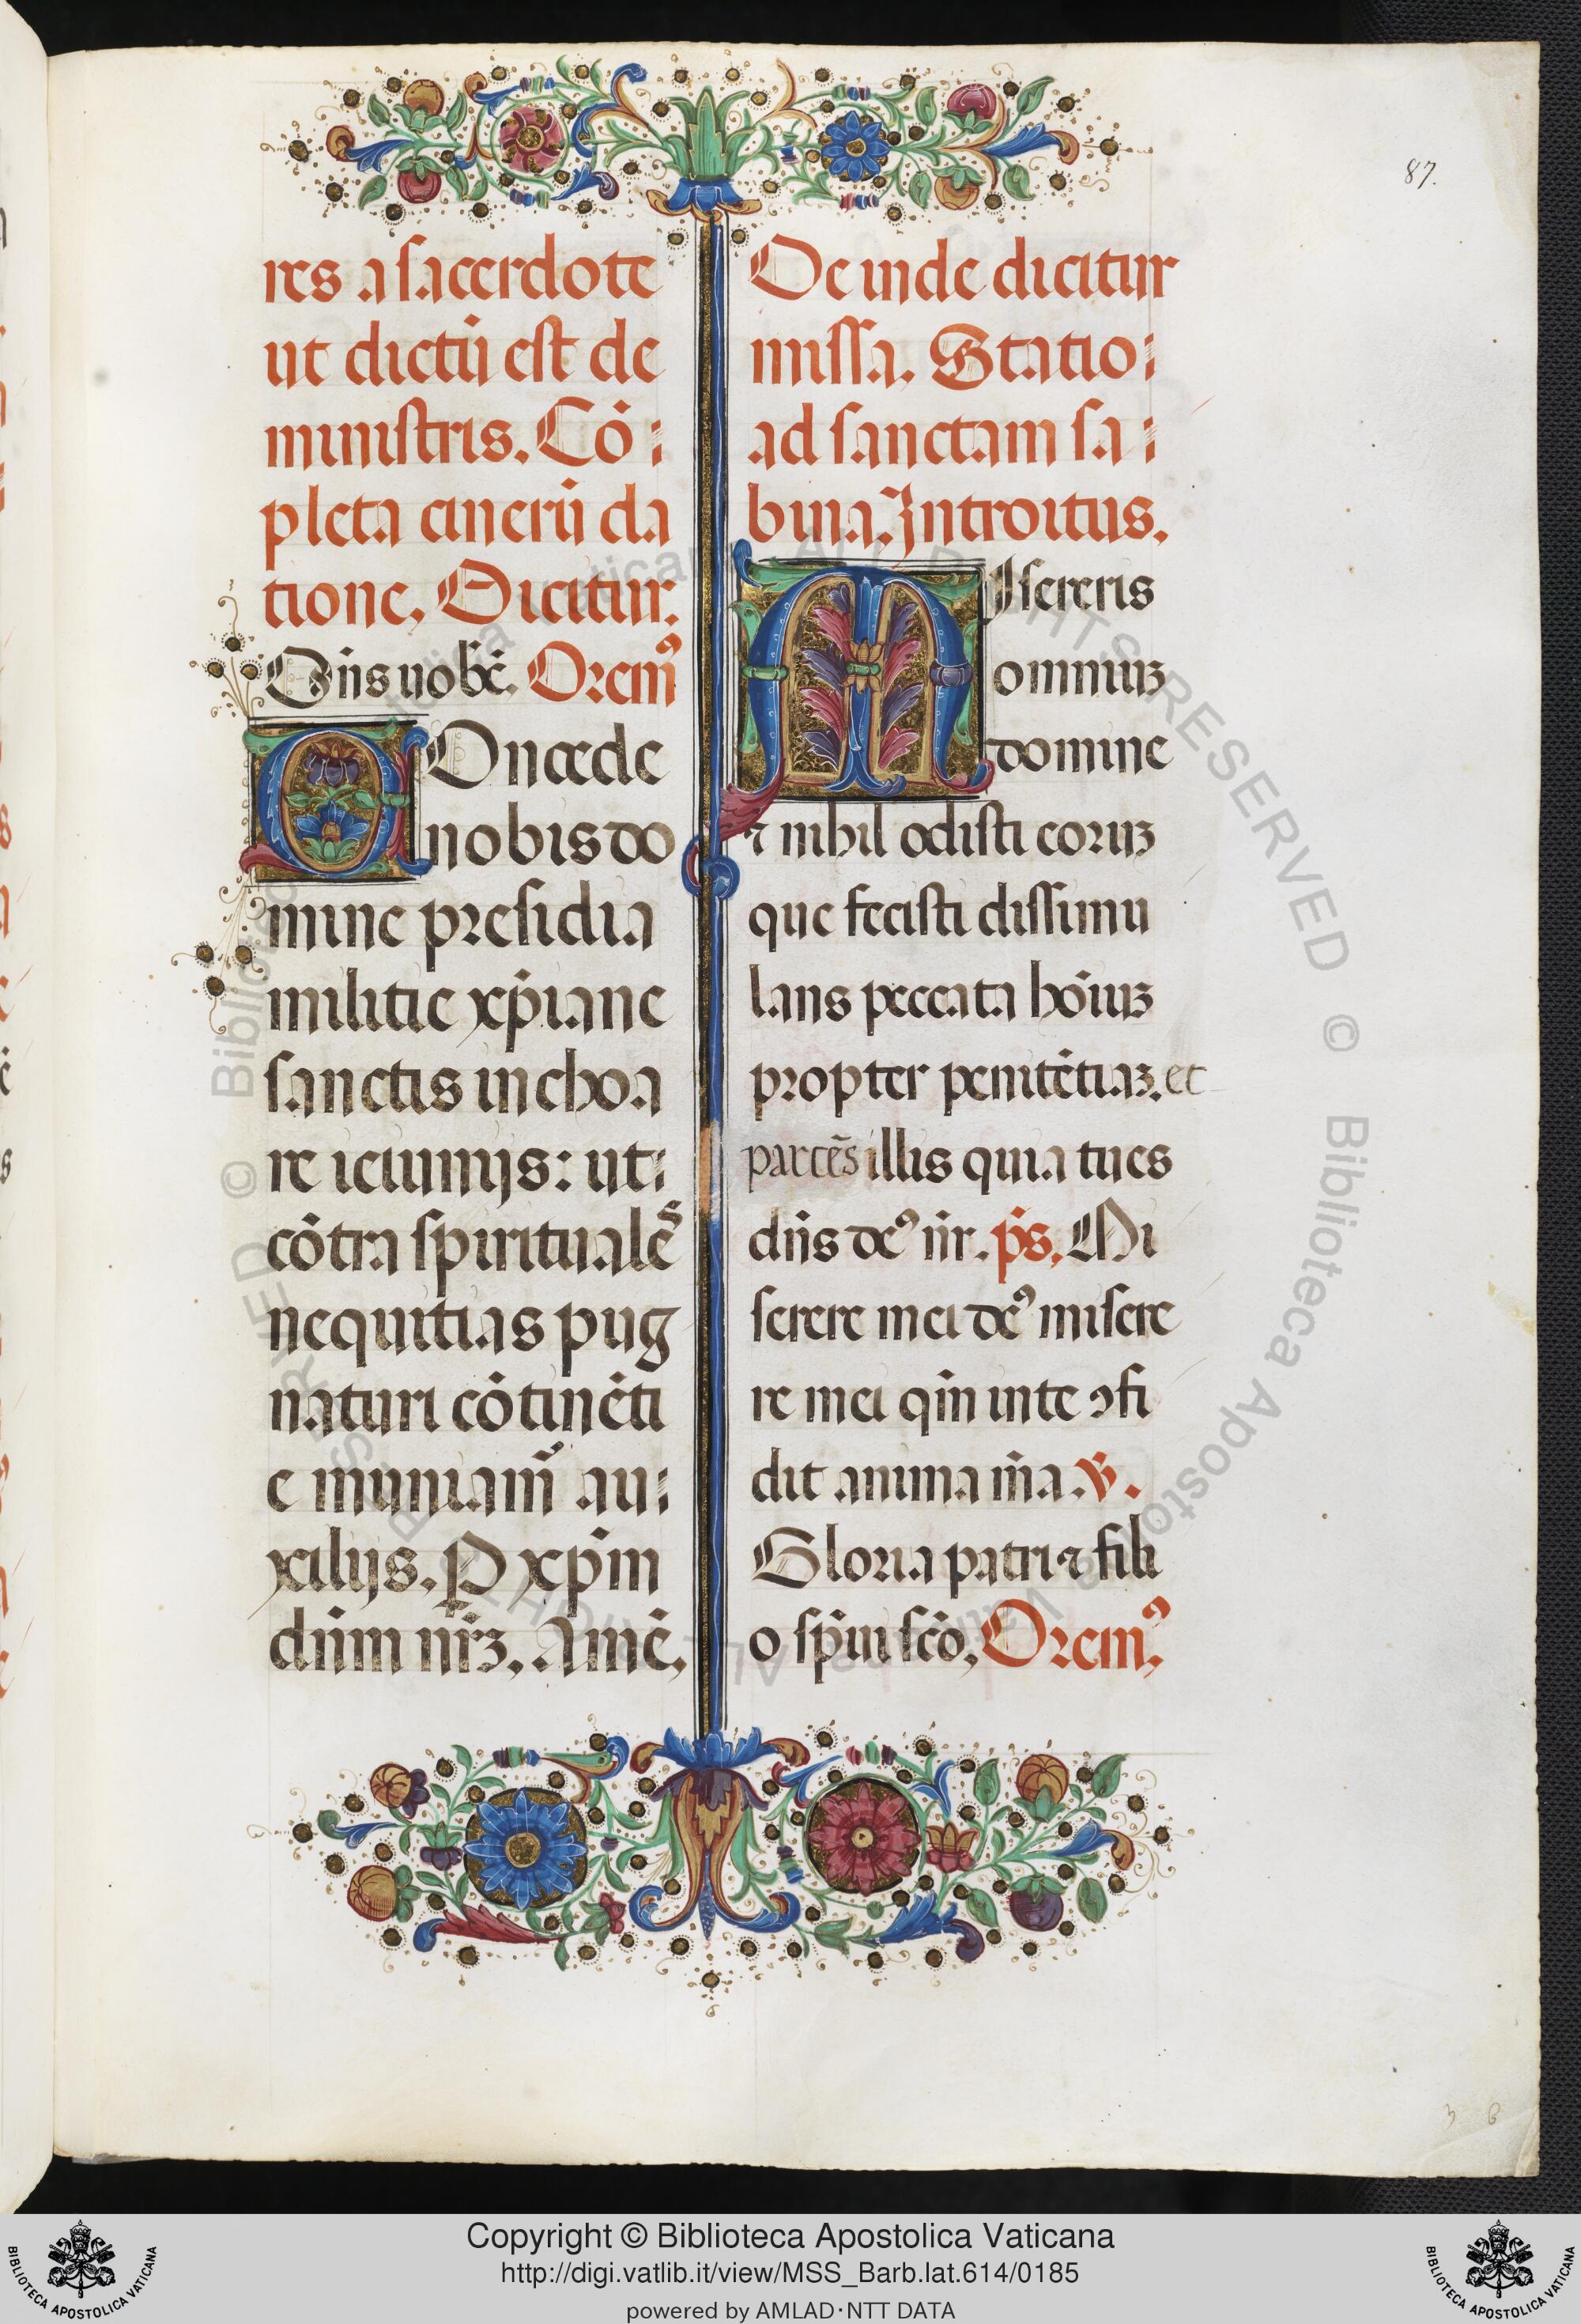 87.
res a sacerdote
ut dictū est de
ministris. Cō
pleta cinerū da
tione. Dicitur.
Dn̄s uobc̄. Orem⁹
COncede
nobis do
mine presidia
militie xp̄iane
sanctis inchoa
re ieiunijs: ut
cōtra spiritualēs
nequitias pug
naturi cōtinēti
e muniam̄ au
xilijs. P xp̄m
dn̄m nr̄ꝫ. Amē.
Deinde dicitur
missa. Statio
ad sanctam sa
bina. Introitus.
MIsereris
omniuꝫ
domine
⁊ nihil odisti eoruꝫ
que fecisti dissimu
lans peccata hōiuꝫ
propter penitētiaꝫ. et
parcēs illis quia tu es
dn̄s de⁹ nr̄. ps̄. Mi
serere mei de⁹ misere
re mei qm̄ in te ↄfi
dit anima m̄a. ℣.
Gloria patri ⁊ fili
o sp̄iui scō. Orem⁹.
Copyright © Biblioteca Apostolica Vaticana
http://digi.vatlib.it/view/MSS_Barb.lat.614/0185
powered by AMLAD·NTT DATA
BIBLIOTECA APOSTOLICA VATICANA
BIBLIOTECA APOSTOLICA VATICANA